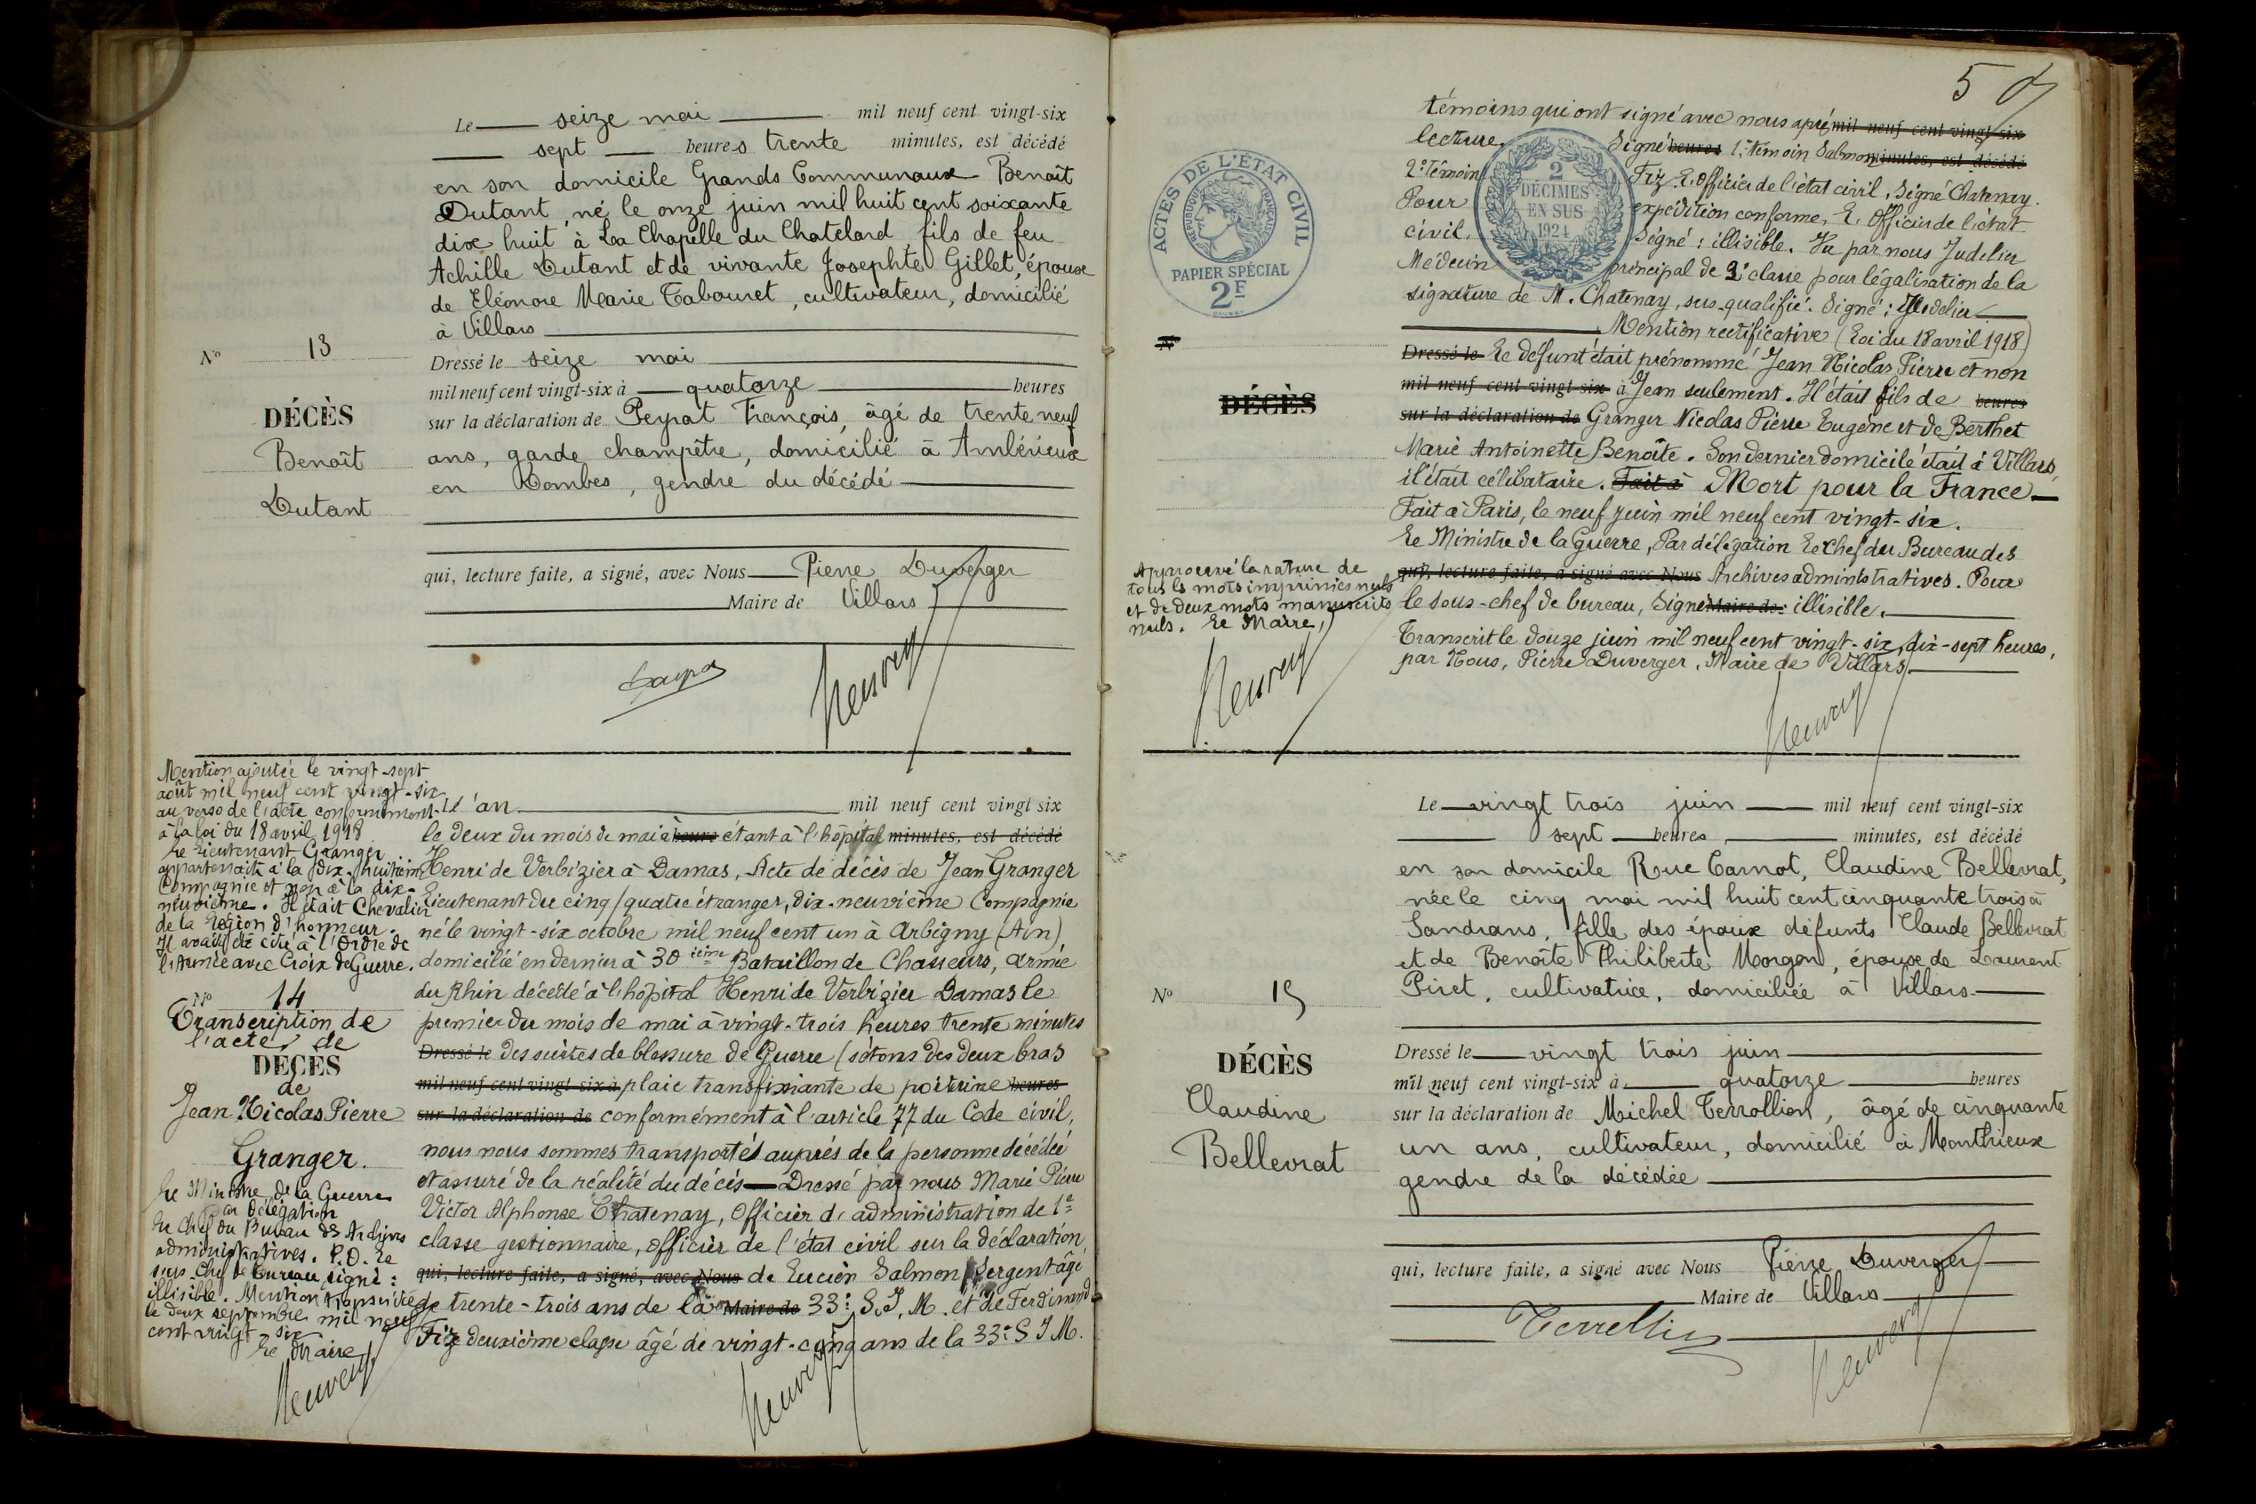 Le seize mai mil neuf cent vingt-six
sept heures trente minutes, est décédé
en son domicile Grands Communaux Benoît
Dutant, né le onze juin mil huit cent soixante
dix huit à La Chapelle du Chatelard, fils de feu
Achille Dutant et de vivante Josephte Gillet, époux
de Eléonore Marie Tabouret, cultivateur, domicilié
à Villars
Dressé le seize mai
mil neuf cent vingt-six à quatorze heures
sur la déclaration de Peyrat François, âgé de trente neuf
ans, garde champêtre, domicilié à Ambérieux
en Dombes, gendre du décédé
qui, lecture faite, a signé, avec Nous Pierre Duverger
Maire de Villars
No 13
DÉCÈS
Benoît
Dutant
Mention ajoutée le vingt-sept
août mil neuf cent vingt-six
au verso de l'acte conformément
à la loi du 18 avril 1918
Le Lieutenant Granger
appartenait à la dix-huitième
Compagnie et non à la dix-
neuvième. Il était Chevalier
de la Légion d'honneur.
Il avait été cité à l'Ordre de
l'Armée avec Croix de Guerre.
No 14
Transcription de
l'acte de
DÉCÈS
de
Jean Nicolas Pierre
Granger.
Le Ministre de la Guerre
Par délégation
Le Chef du Bureau des Archives
administratives. P.O. Le
sous-Chef de bureau signé :
illisible. Mention transcrite
le deux septembre mil neuf
cent vingt six
Le Maire
L'an mil neuf cent vingt six
le deux du mois de mai à heure étant à l'hôpital minutes, est décédé
Henri de Verbizier à Damas, Acte de décès de Jean Granger
Lieutenant du cinq/quatre étranger, dix-neuvième Compagnie
né le vingt-six octobre mil neuf cent un à Arbigny (Ain)
domicilié en dernier à 30 ième Bataillon de Chasseurs, armée
du Rhin décédé à l'hôpital Henri de Verbizier Damas le
premier du mois de mai à vingt-trois heures trente minutes
Dressé le des suites de blessure de Guerre (sétons des deux bras
mil neuf cent vingt-six à plaie transfixiante de poitrine heures
sur la déclaration de conformément à l'article 77 du Code civil,
nous nous sommes transportés auprès de la personne décédée
et assuré de la réalité du décès Dressé par nous Marie Pierre
Victor Alphonse Chatenay, Officier d'administration de 1e
classe gestionnaire, officier de l'état civil sur la déclaration
qui, lecture faite, a signé, avec Nous de Lucien Salmon Sergent âgé
de trente-trois ans de la Maire de 33e S.I.M. et de Ferdinand
Fiz deuxième classe âgé de vingt-cinq ans de la 33e S I M.
5
témoins qui ont signé avec nous après mil neuf cent vingt-six
lecture. Signé heures 1er témoin Salmon minutes, est décédé
2e témoin Fiz L'Officier de l'état civil, Signé Chatenay.
Pour expédition conforme, L'Officier de l'état
civil, Signé : illisible. Vu par nous Judelier
Médecin principal de 2e classe pour légalisation de la
signature de M. Chatenay, sus-qualifié. Signé : Judelier
Mention rectificative (Loi du 18 avril 1918)
Dressé le Le défunt était prénommé Jean Nicolas Pierre et non
mil neuf cent vingt-six à Jean seulement. Il était fils de heures
sur la déclaration de Granger Nicolas Pierre Eugène et de Berthet
Marie Antoinette Benoîte. Son dernier domicile était à Villars
il était célibataire. Fait à Mort pour la France
Fait à Paris, le neuf juin mil neuf cent vingt-six.
Le Ministre de la Guerre, Par délégation Le Chef du Bureau des
qui, lecture faite, a signé avec Nous Archives administratives. Pour
le sous-chef de bureau, Signé Maire de: illisible.
Transcrit le douze juin mil neuf cent vingt-six, dix-sept heures,
par Nous, Pierre Duverger, Maire de Villars
ACTES DE L'ÉTAT CIVIL
RÉPUBLIQUE FRANÇAISE
PAPIER SPÉCIAL
2F
2
DÉCIMES
EN SUS
1924
No
DÉCÈS
Approuvé la rature de
tous les mots imprimés nuls
et de deux mots manuscrits
nuls. Le Maire,
Le vingt trois juin mil neuf cent vingt-six
sept heures, minutes, est décédé
en son domicile Rue Carnot, Claudine Bellevrat,
née le cinq mai mil huit cent cinquante trois à
Sandrans, fille des époux défunts Claude Bellevrat
et de Benoîte Philiberte Morgon, épouse de Laurent
Piret, cultivatrice, domiciliée à Villars.
Dressé le vingt trois juin
mil neuf cent vingt-six à quatorze heures
sur la déclaration de Michel Terrollion, âgé de cinquante
un ans, cultivateur, domicilié à Monthieux
gendre de la décédée
qui, lecture faite, a signé avec Nous Pierre Duverger
Maire de Villars
No 15
DÉCÈS
Claudine
Bellevrat